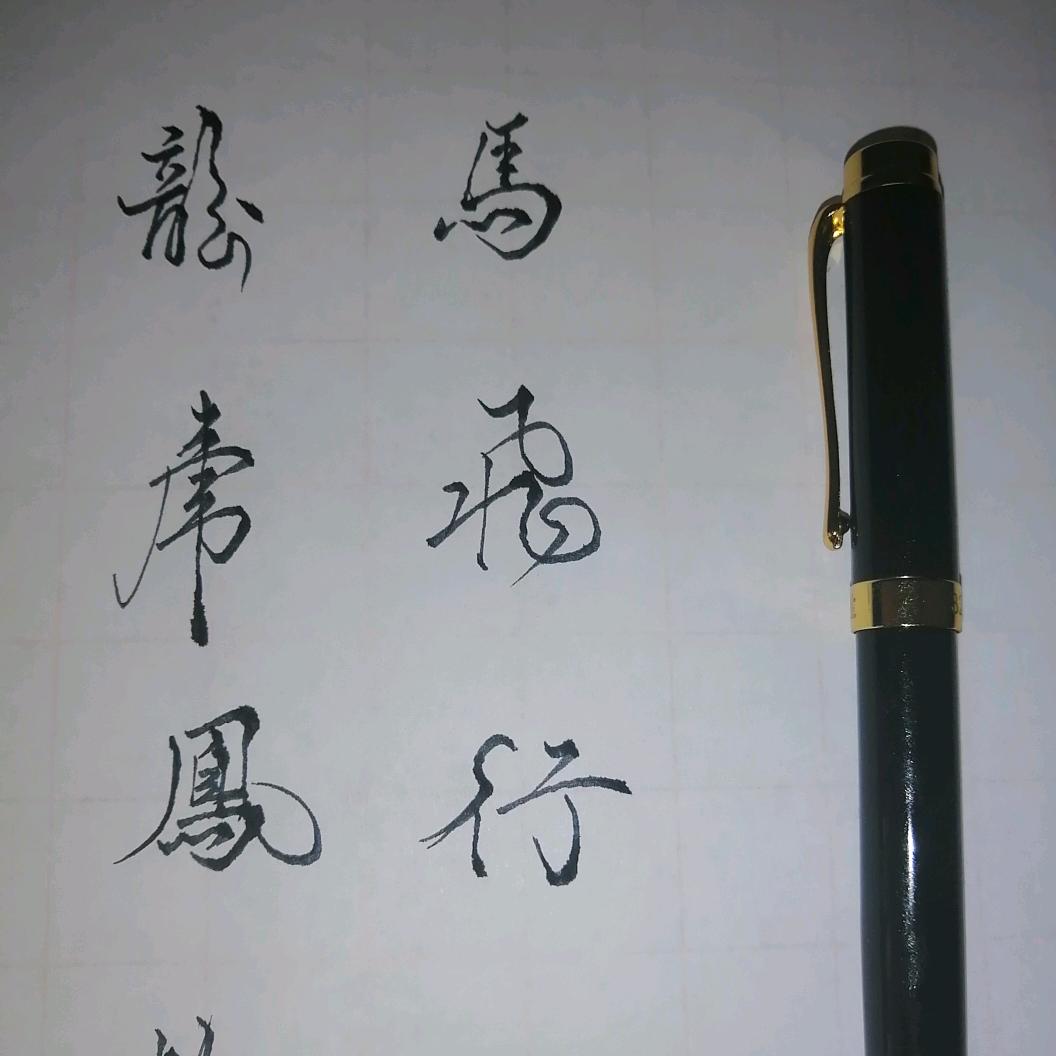 馬飛行
龍虎鳳